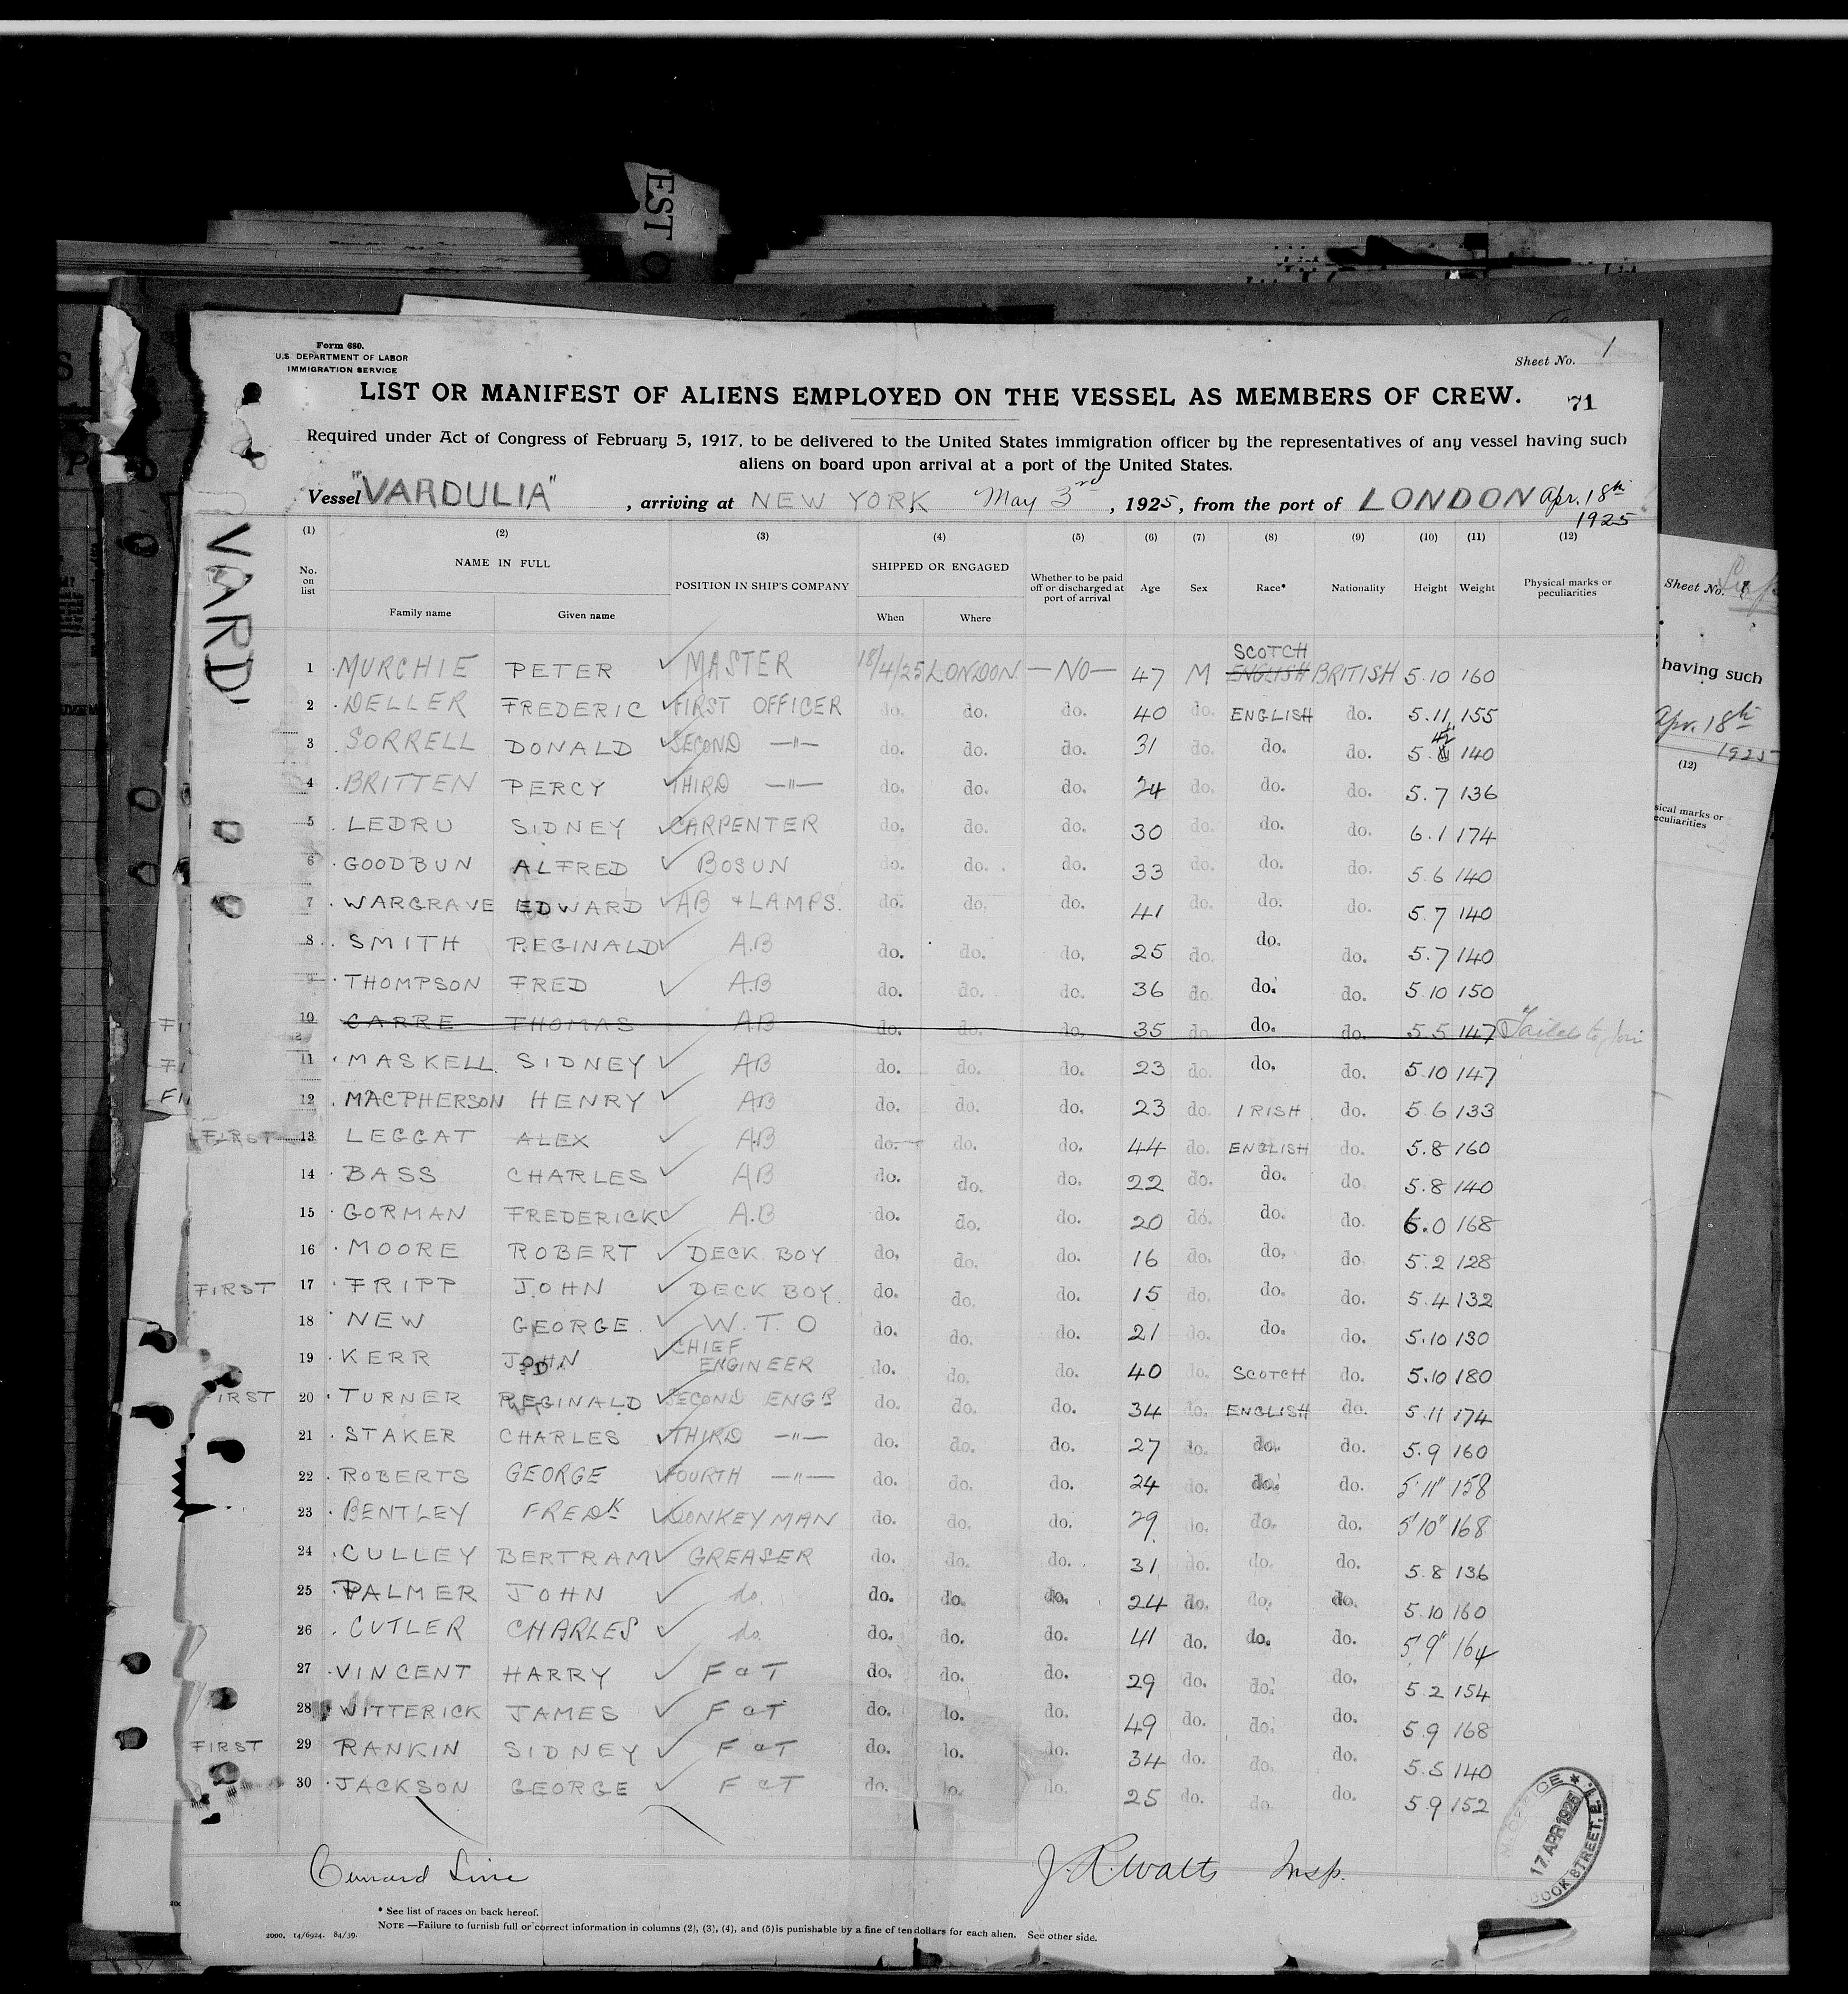 EST O
Form 680.
U.S. DEPARTMENT OF LABOR
IMMIGRATION SERVICE
Sheet No. 1
LIST OR MANIFEST OF ALIENS EMPLOYED ON THE VESSEL AS MEMBERS OF CREW. 71
Required under Act of Congress of February 5, 1917, to be delivered to the United States immigration officer by the representatives of any vessel having such
aliens on board upon arrival at a port of the United States.
Vessel "VARDULIA", arriving at NEW YORK, May 3rd, 1925, from the port of LONDON Apr. 18th
1925
VARD
(1) (2) (3) (4) (5) (6) (7) (8) (9) (10) (11) (12)
No. on list NAME IN FULL POSITION IN SHIP'S COMPANY SHIPPED OR ENGAGED Whether to be paid off or discharged at port of arrival Age Sex Race* Nationality Height Weight Physical marks or peculiarities
Family name Given name When Where
1 MURCHIE PETER ✓ MASTER 18/4/25 LONDON —NO— 47 M SCOTCH ENGLISH BRITISH 5.10 160
2 DELLER FREDERIC ✓ FIRST OFFICER do. do. do. 40 do. ENGLISH do. 5.11 155
3 SORRELL DONALD ✓ SECOND —"— do. do. do. 31 do. do. do. 5. 4½ 140
4 BRITTEN PERCY ✓ THIRD —"— do. do. do. 24 do. do. do. 5.7 136
5 LEDRU SIDNEY ✓ CARPENTER do. do. do. 30 do. do. do. 6.1 174
6 GOODBUN ALFRED ✓ BOSUN do. do. do. 33 do. do. do. 5.6 140
7 WARGRAVE EDWARD ✓ AB & LAMPS. do. do. do. 41 do. do. do. 5.7 140
8 SMITH REGINALD ✓ A.B do. do. do. 25 do. do. do. 5.7 140
9 THOMPSON FRED ✓ A.B do. do. do. 36 do. do. do. 5.10 150
10 CARRE THOMAS AB do. do. do. 35 do. do. do. 5.5 147 Failed to join
11 MASKELL SIDNEY ✓ AB do. do. do. 23 do. do. do. 5.10 147
12 MACPHERSON HENRY ✓ AB do. do. do. 23 do. IRISH do. 5.6 133
FIRST 13 LEGGAT ALEX ✓ A.B do. do. do. 44 do. ENGLISH do. 5.8 160
14 BASS CHARLES ✓ AB do. do. do. 22 do. do. do 5.8 140
15 GORMAN FREDERICK ✓ A.B do. do. do. 20 do. do. do. 6.0 168
16 MOORE ROBERT ✓ DECK BOY do. do. do. 16 do. do. do. 5.2 128
FIRST 17 FRIPP JOHN ✓ DECK BOY. do. do. do. 15 do. do. do. 5.4 132
18 NEW GEORGE ✓ W.T.O do. do. do. 21 do. do. do. 5.10 130
19 KERR JOHN D. ✓ CHIEF ENGINEER do. do. do. 40 do. SCOTCH do. 5.10 180
FIRST 20 TURNER REGINALD ✓ SECOND ENGR do. do. do. 34 do. ENGLISH do. 5.11 174
21 STAKER CHARLES ✓ THIRD —"— do. do. do. 27 do. do. do. 5.9 160
22 ROBERTS GEORGE ✓ FOURTH —"— do. do. do. 24 do. do. do. 5'11" 158
23 BENTLEY FREDK ✓ DONKEYMAN do. do. do. 29 do. do. do. 5'10" 168
24 CULLEY BERTRAM ✓ GREASER do. do. do. 31 do. do. do. 5.8 136
25 PALMER JOHN ✓ do. do. do. do. 24 do. do. do. 5.10 160
26 CUTLER CHARLES ✓ do. do. do. do. 41 do. do. do. 5'9" 164
27 VINCENT HARRY ✓ F & T do. do. do. 29 do. do. do. 5.2 154
28 WITTERICK JAMES ✓ F & T do. do. do. 49 do. do. do. 5.9 168
FIRST 29 RANKIN SIDNEY ✓ F & T do. do. do. 34 do. do. do. 5.5 140
30 JACKSON GEORGE ✓ F & T do. do. do. 25 do. do. do. 5.9 152
Cunard Line J. R. Watts Insp.
17 APR 1925
* See list of races on back hereof.
NOTE—Failure to furnish full or correct information in columns (2), (3), (4), and (5) is punishable by a fine of ten dollars for each alien. See other side.
2000. 14/6924. 84/39.
Sheet No.
having such
Apr. 18th
1925
(12)
sical marks or
eculiarities